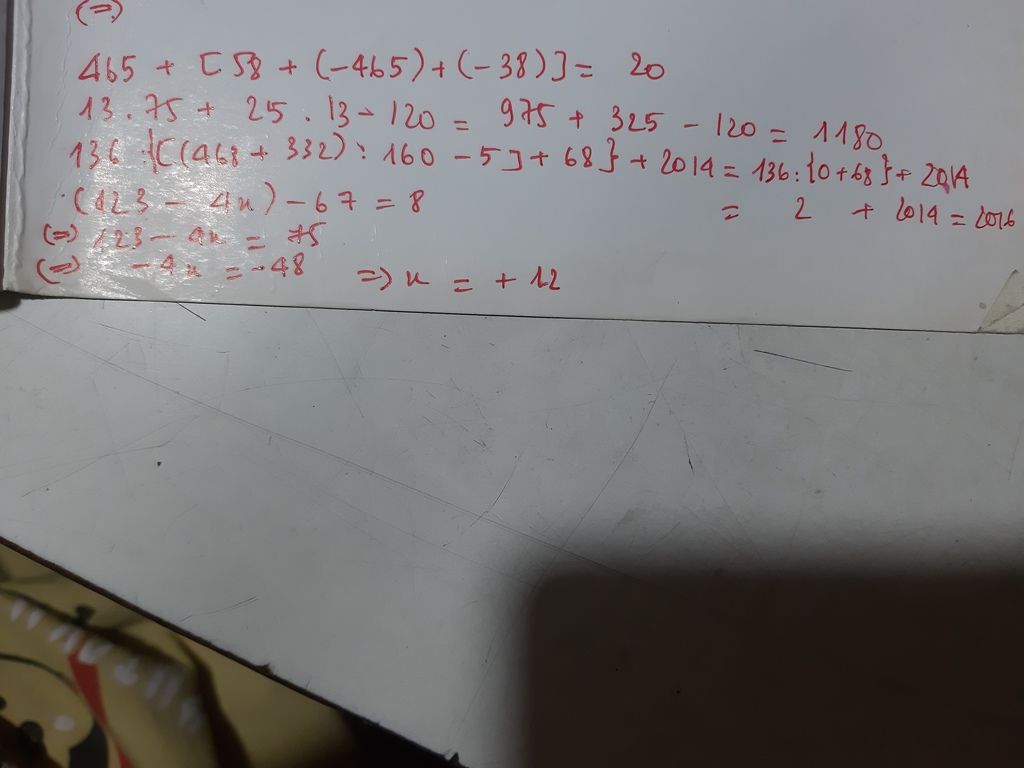 (=)
465 + [58 + (-465) + (-38)] = 20
13 . 75 + 25 . 13 - 120 = 975 + 325 - 120 = 1180
136 : {[(468 + 332) : 160 - 5] + 68} + 2014 = 136 : {0 + 68} + 2014
= 2 + 2014 = 2016
(123 - 4x) - 67 = 8
(=) 123 - 4x = 75
(=) -4x = -48 => x = + 12